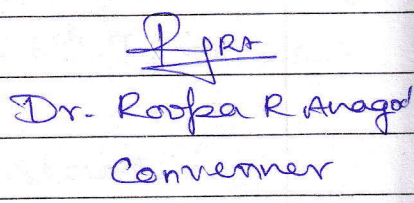 Dr. Roopa R Anagod
Convenner